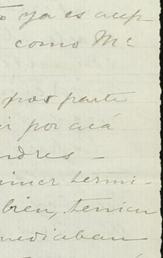 ya es acep
como Mc
por parte
por acá
ndres —
imer térmi-
bien, tenían
mediaban